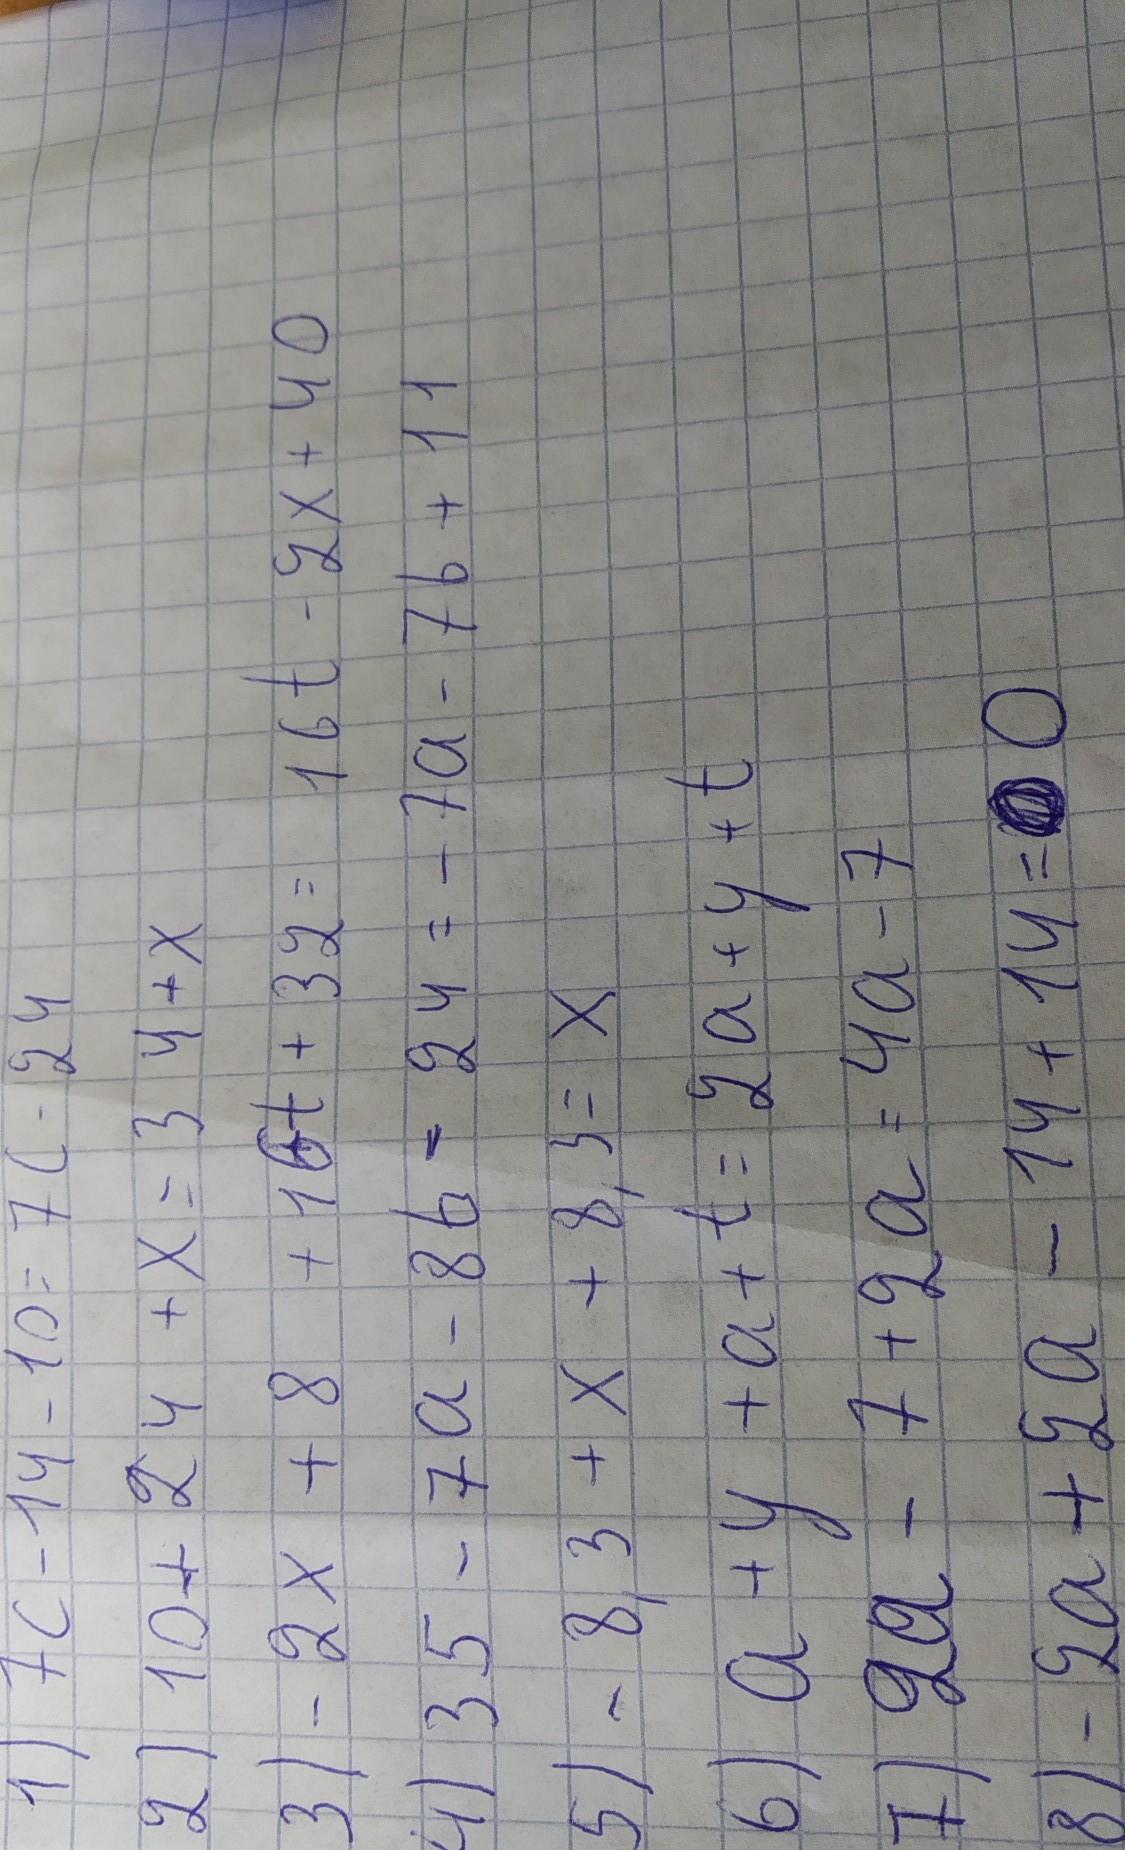 1) 7c - 14 - 10 = 7c - 24
2) 10 + 24 + x = 34 + x
3) - 2x + 8 + 16t + 32 = 16t - 2x + 40
4) 35 - 7a - 8b - 24 = - 7a - 7b + 11
5) - 8,3 + x + 8,3 = x
6) a + y + a + t = 2a + y + t
7) 2a - 7 + 2a = 4a - 7
8) - 2a + 2a - 14 + 14 = 0